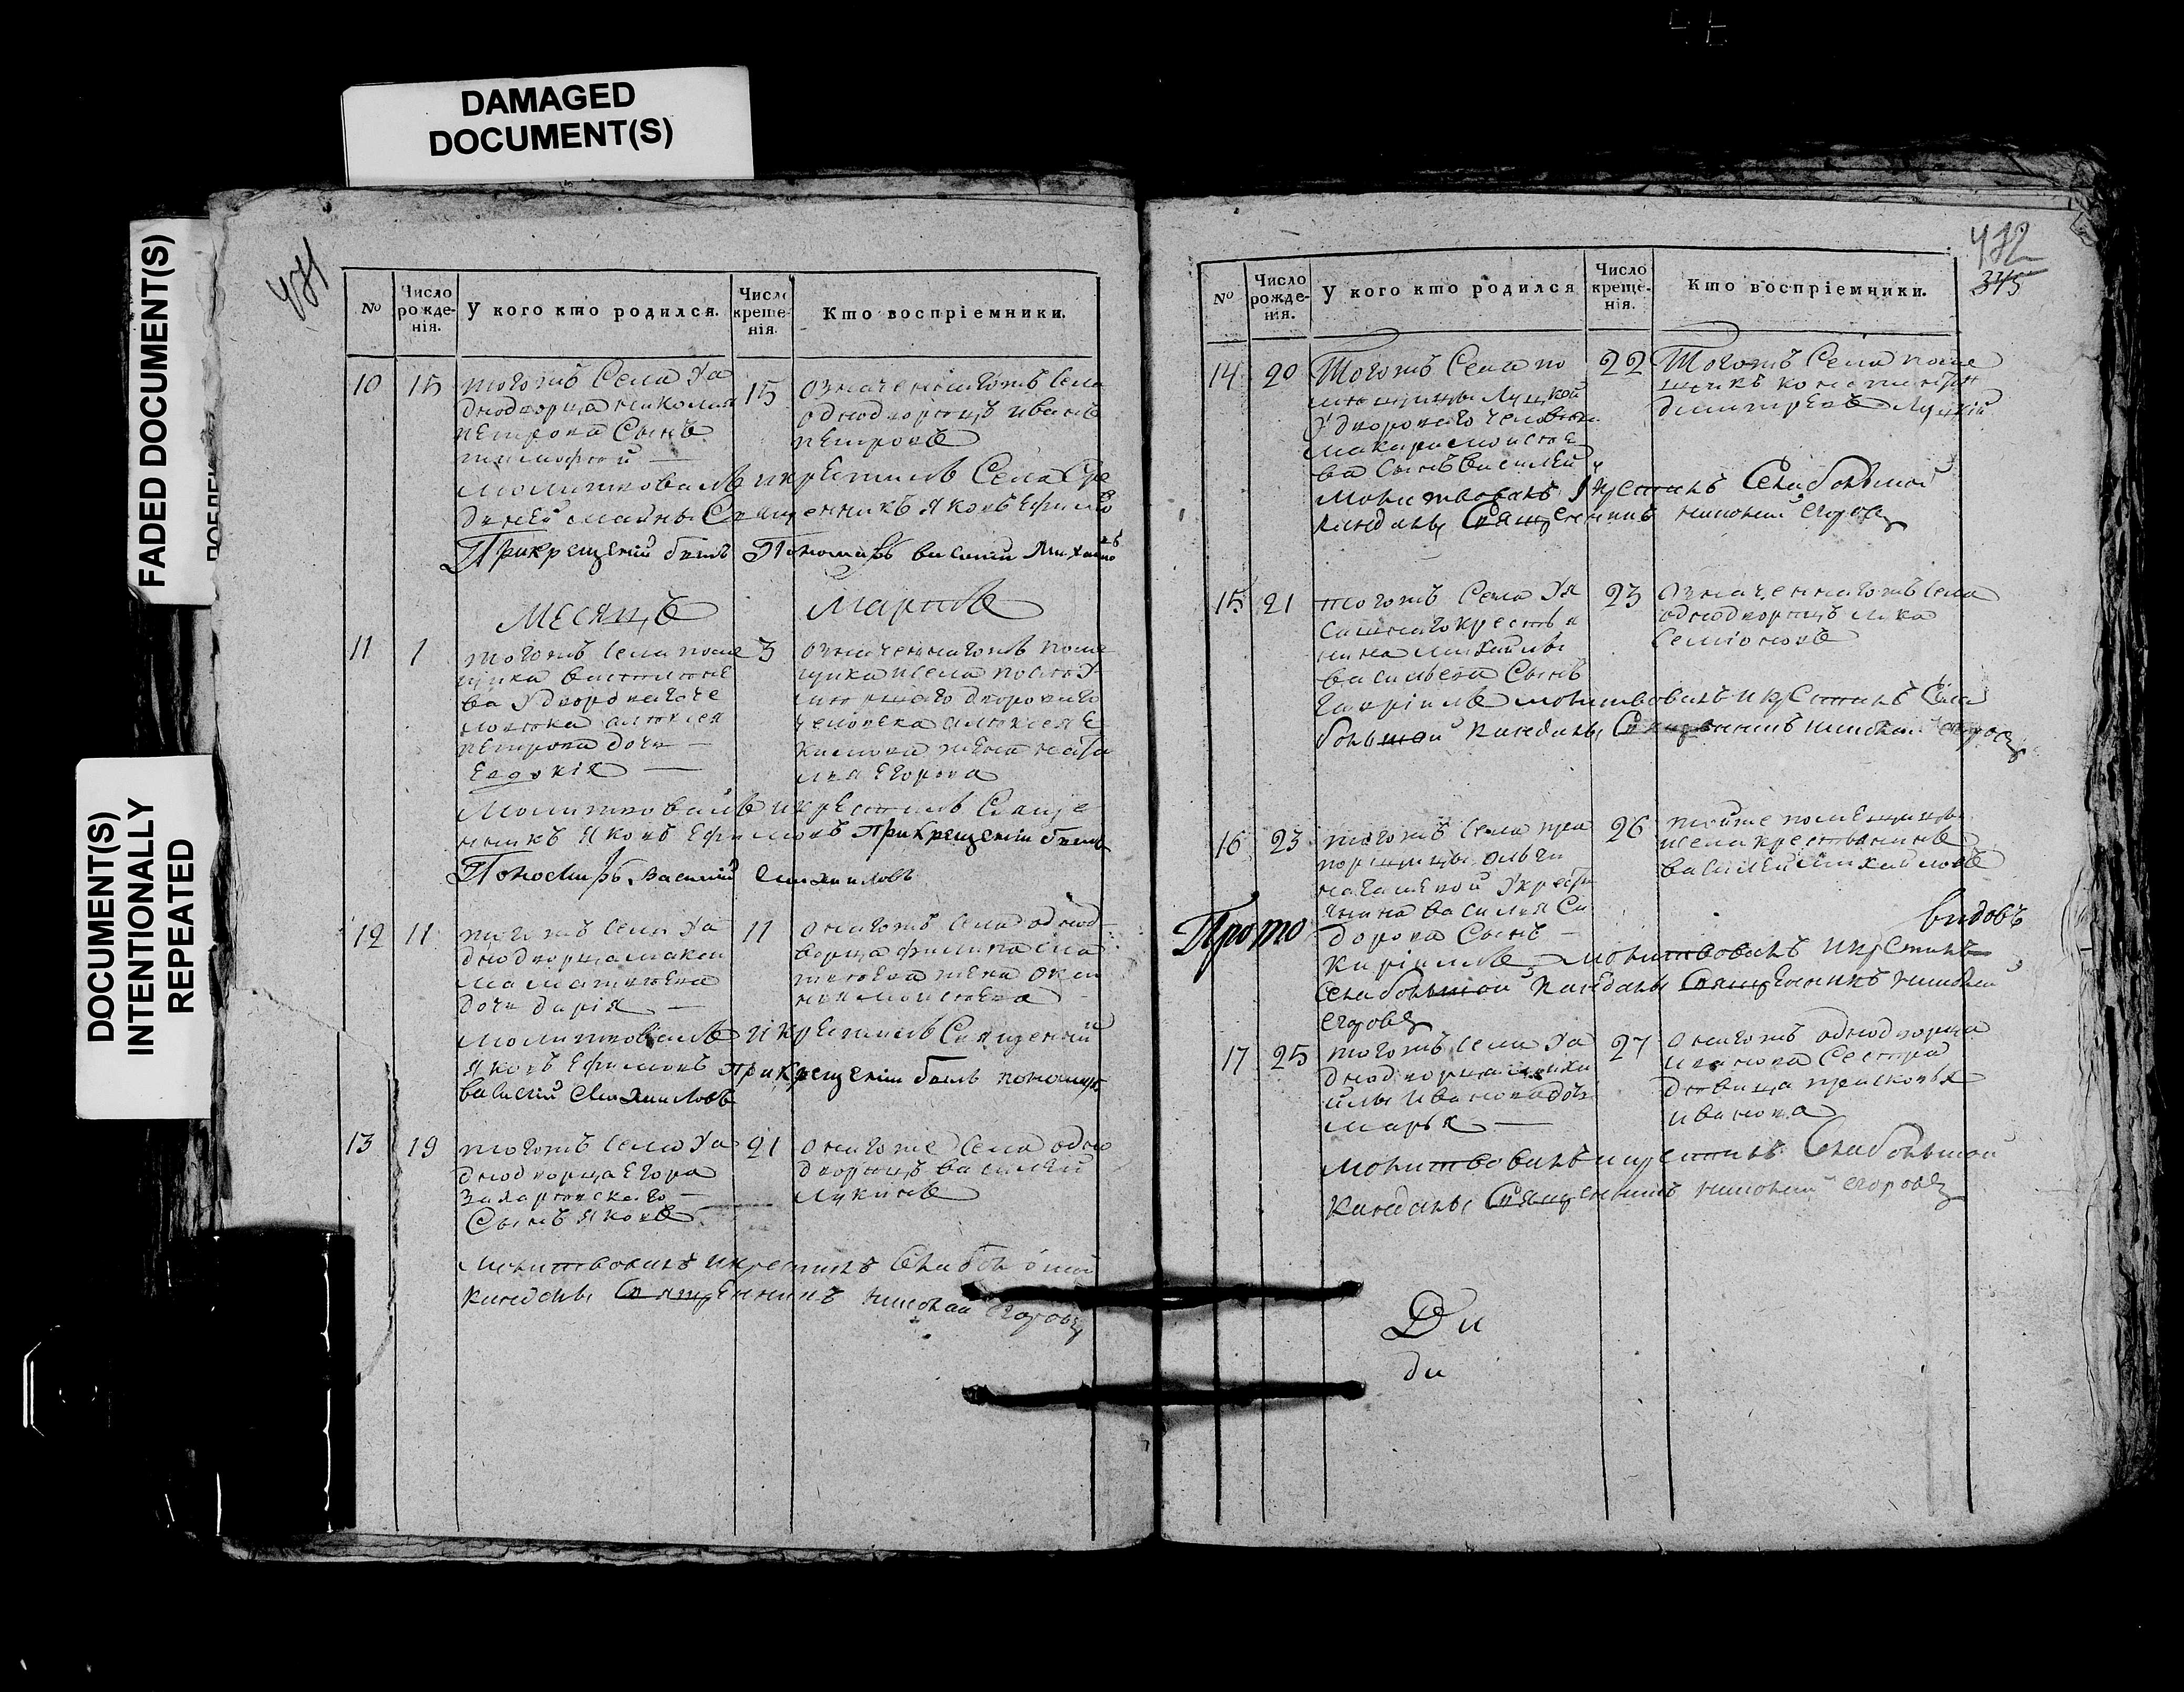 DAMAGED
DOCUMENT(S)
FADED DOCUMENT(S)
DOCUMENT(S)
INTENTIONALLY
REPEATED
471
№
Число рожде-нія.
У кого кто родился.
Число креще-нія.
Кто воспріемники.
10 15 тогожъ Села Уа
днодворца николая
петрова Сынъ
тимофей
15 означеннагожъ Села
однодворецъ иванъ
петровъ
Молитвовалъ икрестилъ Села Сре
дней майны Священникъ Яковъ Ефимо
въ
Прикрещеніи былъ Пономарь василий Михаило
въ
Месяцъ Мартъ
11 1 тогожъ Села поме
щика
ва Удвороваго че
ловека алексея
петрова дочь
Евдокія
3 означеннагожъ поме
щика
дворового
человека алексея Е
кимова жена ната
лья Егорова
Молитвовалъ икрестилъ Свяще
нникъ Яковъ Ефимовъ Прикрещеніи былъ
Пономарь василий Михаиловъ
12 11 тогожъ Села Уа
днодворца макси
ма матвеева
дочь дарія
11 Онагожъ Села однод
ворца филипа ма
твеева жена Окси
нья моисеева
Молитвовалъ Икрестилъ Священни
Яковъ Ефимовъ Прикрещеніи былъ пономарь
василий Михаиловъ
13 19 тогожъ Села Уа
днодворца Егора
Сынъ Яковъ
21 Онагоже Села одно
дворецъ василей
Лукинъ
Молитвовалъ икрестилъ Села большой
кандалы Священникъ николай Егоровъ
472
375
№
Число рожде-нія.
У кого кто родился
Число креще-нія.
Кто воспріемники.
14 20 Тогожъ Села по
мещицы Луцкой
Удворового человека
макара моисее
ва Сынъ василей
22 Тогожъ Села поме
щикъ константин
дмитревъ Луцкій
Молитвовалъ Икрестилъ Села большой
кандалы Священникъ николай Егоровъ
15 21 тогожъ Села Уя
крестья
нина михайлы
васильева Сынъ
гавріилъ
23 Означеннагожъ Села
однодворецъ лука
Семіоновъ
молитвовалъ икрестилъ Села
большой кандалы Священникъ николай Егоровъ
16 23 тогожъ Села пра
порщицы Ольги
Укрестья
нина василья Си
дорова Сынъ
кирилъ
26 тойже помещицы
крестьянинъ
василей михайловъ
Прото
видовъ
молитвовалъ икрестилъ
Села большой кандалы Священникъ николай
Егоровъ
17 25 тогожъ Села Уа
днодворца михай
илы Иванова дочь
марья
27 Онагожъ однодворца
Иванова Сестра
девица прасковья
Иванова
молитвовалъ икрестилъ Села большой
кандалы Священникъ николай Егоровъ
Ди
ди